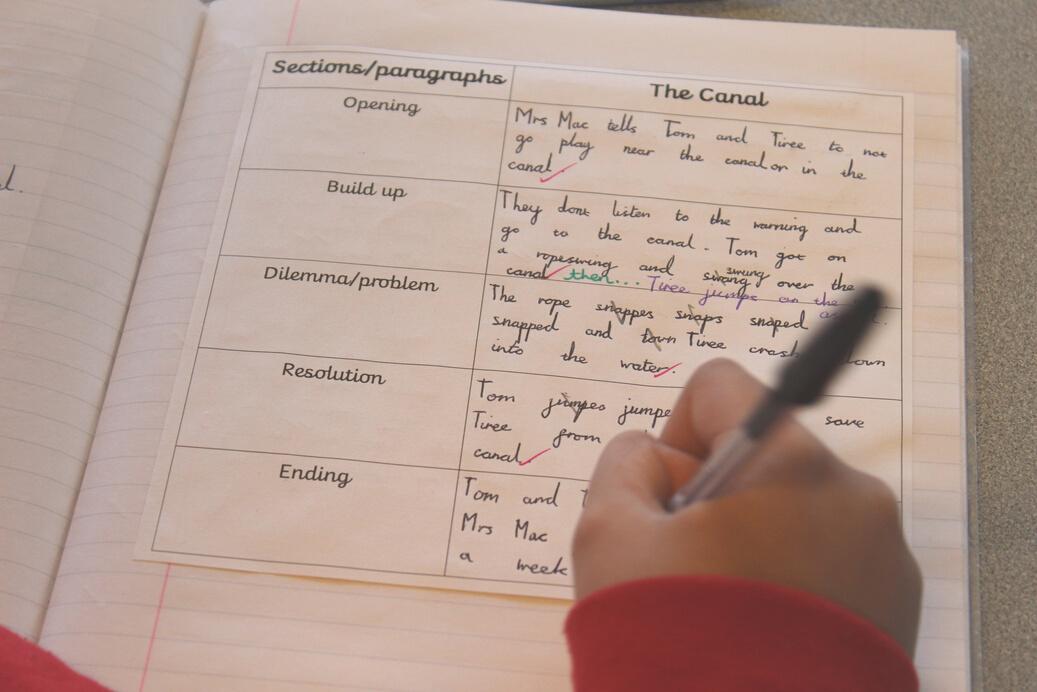 Sections/paragraphs
The Canal
Opening
Mrs Mac tells Tom and Tiree to not
go play near the canal or in the
canal
Build up
They dont listen to the warning and
go to the canal. Tom got on
a ropeswing and swang swung over the
canal then... Tiree jumps on the
Dilemma/problem
The rope snappes snaps snaped
snapped and town Tiree crash down
into the water.
Resolution
Tom jumpes jumpe save
Tiree from
canal
Ending
Tom and
Mrs Mac
a week